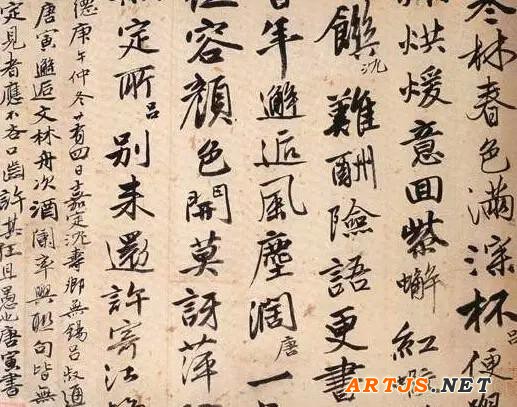 林春色滿深杯呂便
烘煖意回紫蠏紅
饌沈難酬險語更書
年邂逅風塵濶唐一
容顔色開莫訝萍
定所呂別来還許寄江
德庚午仲冬廿有四日嘉定沈壽卿無錫呂叔通
唐寅邂逅文林舟次酒闌率興聯句皆無
定見者應不吝口齒許其狂且愚也唐寅書
ARTJS.NET